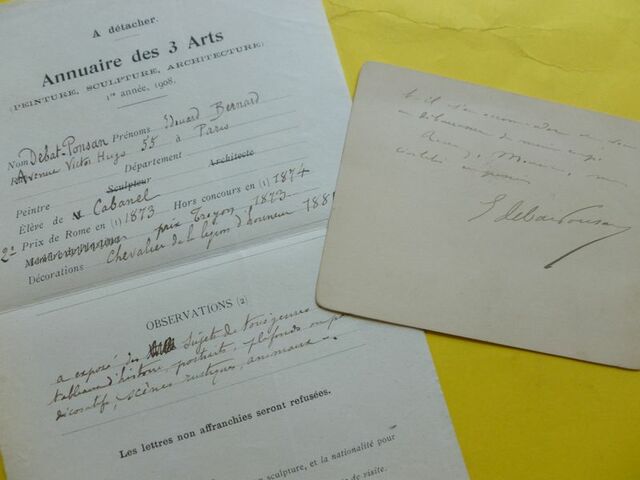 A détacher.
Annuaire des 3 Arts
(PEINTURE, SCULPTURE, ARCHITECTURE)
1re année, 1908.
Nom Debat-Ponsan Prénoms Edouard Bernard
Avenue Victor Hugo 55 à Paris
Département
Peintre Sculpteur Architecte
Élève de M Cabanel
2e Prix de Rome en (1) 1873 Hors concours en (1) 1874
prix Troyon, 1873
Décorations Chevalier de la légion d'honneur 1881
OBSERVATIONS (2)
a exposé des sujets de tous genres
tableaux d'histoire portraits, plafonds ou
décoratifs, scènes rustiques, animaux.
Les lettres non affranchies seront refusées.
sculpture, et la nationalité pour
de visite.
Monsieur,
E Debat Ponsan